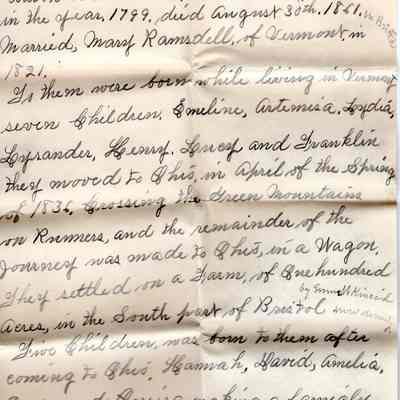 in the year, 1799. died August 30th. 1861.
Married, Mary Ramsdell, of Vermont. in
1821.
To them were born while living in Vermont
seven Children. Emeline, Artemisa, Lydia,
Lysander, Henry. Lucy and Franklin
they moved to Ohio, in April of the Spring
of 1836, Crossing the Green Mountains
on Runners, and the remainder of the
Journey was made to Ohio, in a Wagon,
They settled on a Farm, of One hundred
by
Acres, in the South part of Bristol
Five Children, was born to them after
coming to Ohio. Hannah, David, Amelia,